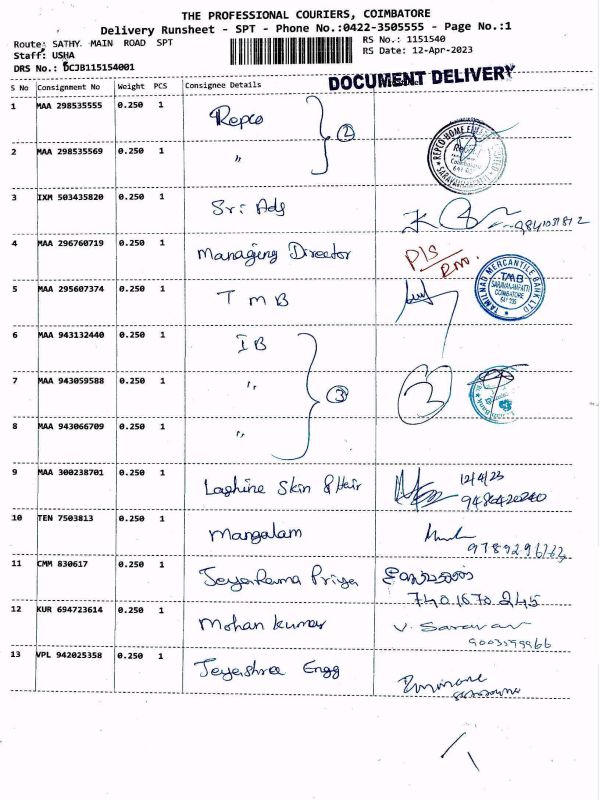 THE PROFESSIONAL COURIERS, COIMBATORE
Delivery Runsheet - SPT - Phone No.:0422-3505555 - Page No.:1
Route: SATHY MAIN ROAD SPT
RS No.: 1151540
Staff: USHA
RS Date: 12-Apr-2023
DRS No.: DCJB115154001
DOCUMENT DELIVERY
S No Consignment No Weight PCS Consignee Details
1 MAA 298535555 0.250 1 Repco 2
2 MAA 298535569 0.250 1 "
3 IXM 503435820 0.250 1 Sri Ads
4 MAA 296760719 0.250 1 Managing Director
5 MAA 295607374 0.250 1 TMB
TAMILNAD MERCANTILE BANK LTD
TMB
COIMBATORE
6 MAA 943132440 0.250 1 IB
7 MAA 943059588 0.250 1 " 3 3
8 MAA 943066709 0.250 1 "
9 MAA 300238701 0.250 1 Lashine Skin & Hair 12/4/23
9486420240
10 TEN 7503813 0.250 1 Mangalam
11 CMM 830617 0.250 1 Jeyarama Priya
740 1670 245
12 KUR 694723614 0.250 1 Mohan kumar V. Saravan
9003599966
13 VPL 942025358 0.250 1 Jeyashree Engg